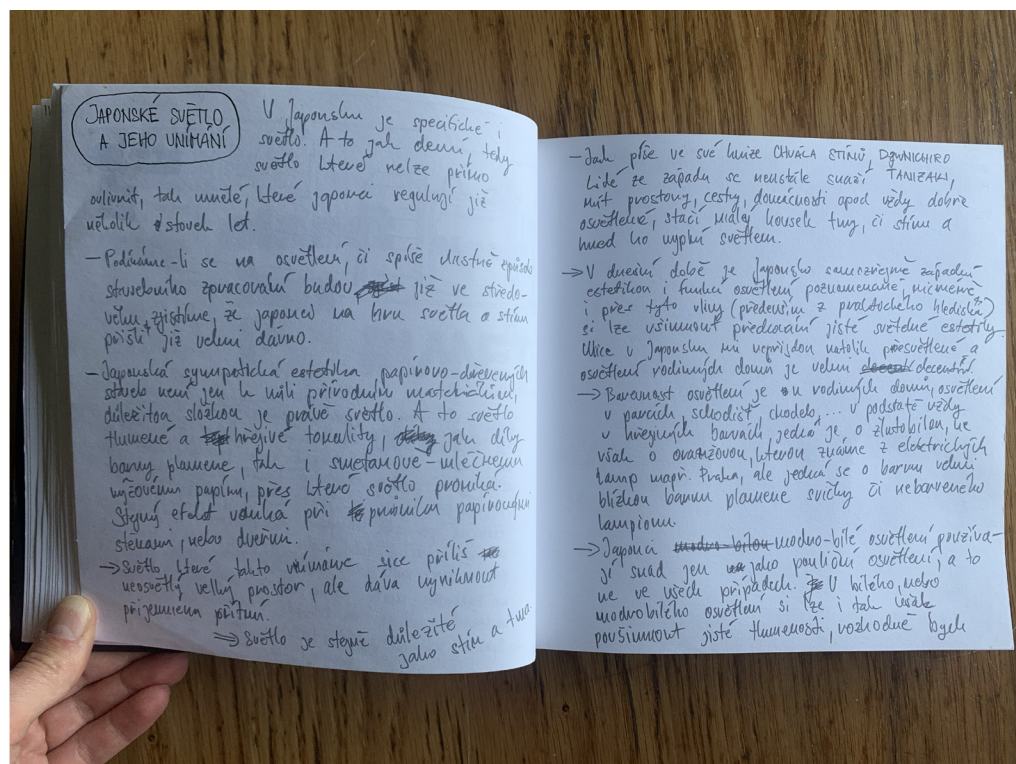 JAPONSKÉ SVĚTLO
A JEHO VNÍMÁNÍ
V Japonsku je specifické i
světlo. A to jak denní tedy
světlo které nelze přímo
ovlivnit, tak umělé, které japonci regulují již
několik stovek let.
— Podíváme-li se na osvětlení, či spíše vlastně způsob
stavebního zpracování budov již ve středo-
věku, zjistíme, že japonci na hru světla a stínu
přišli již velmi dávno.
— Japonská sympatická estetika papírovo-dřevěných
staveb není jen k mílí přírodním materiálům,
důležitou složkou je právě světlo. A to světlo
tlumené a hřejivé tonality, jak díky
barvy plamene, tak i smetanově-mléčnému
rýžovému papíru, přes které světlo proniká.
Stejný efekt vzniká při průniku papírovými
stěnami, nebo dveřmi.
→ Světlo, které takto vnímáme sice příliš
neosvětlí velký prostor, ale dává vyniknout
příjemnému přítmí.
⇒ Světlo je stejně důležité
jako stín a tma.
— Jak píše ve své knize CHVÁLA STÍNŮ, DJUNICHIRO
TANIZAKI,
Lidé ze západu se neustále snaží
mít prostory, cesty, domácnosti apod vždy dobře
osvětlené, stačí malý kousek tmy, či stínu a
hned ho vyplní světlem.
→ V dnešní době je Japonsko samozřejmě západní
estetikou i funkcí osvětlení poznamenáno, nicméně
i přes tyto vlivy (především z praktického hlediska)
si lze všimnout předávání jisté světelné estetiky.
Ulice v Japonsku mi nepřijdou natolik přesvětlené a
osvětlení rodinných domů je velmi decentní.
→ Barevnost osvětlení je u rodinných domů, osvětlení
v parcích, schodišť, chodeb, ... v podstatě vždy
v hřejivých barvách, jedná je o žlutobílou, ne
však o oranžovou, kterou známe z elektrických
lamp např. Praha, ale jedná se o barvu velmi
blízkou barvu plamene svíčky či nebarveného
lampionu.
→ Japonci modro-bílou modro-bílé osvětlení používa-
jí snad jen jako pouliční osvětlení, a to
ne ve všech případech. U bílého, nebo
modrobílého osvětlení si lze i tak však
povšimnout jisté tlumenosti, rozhodně bych